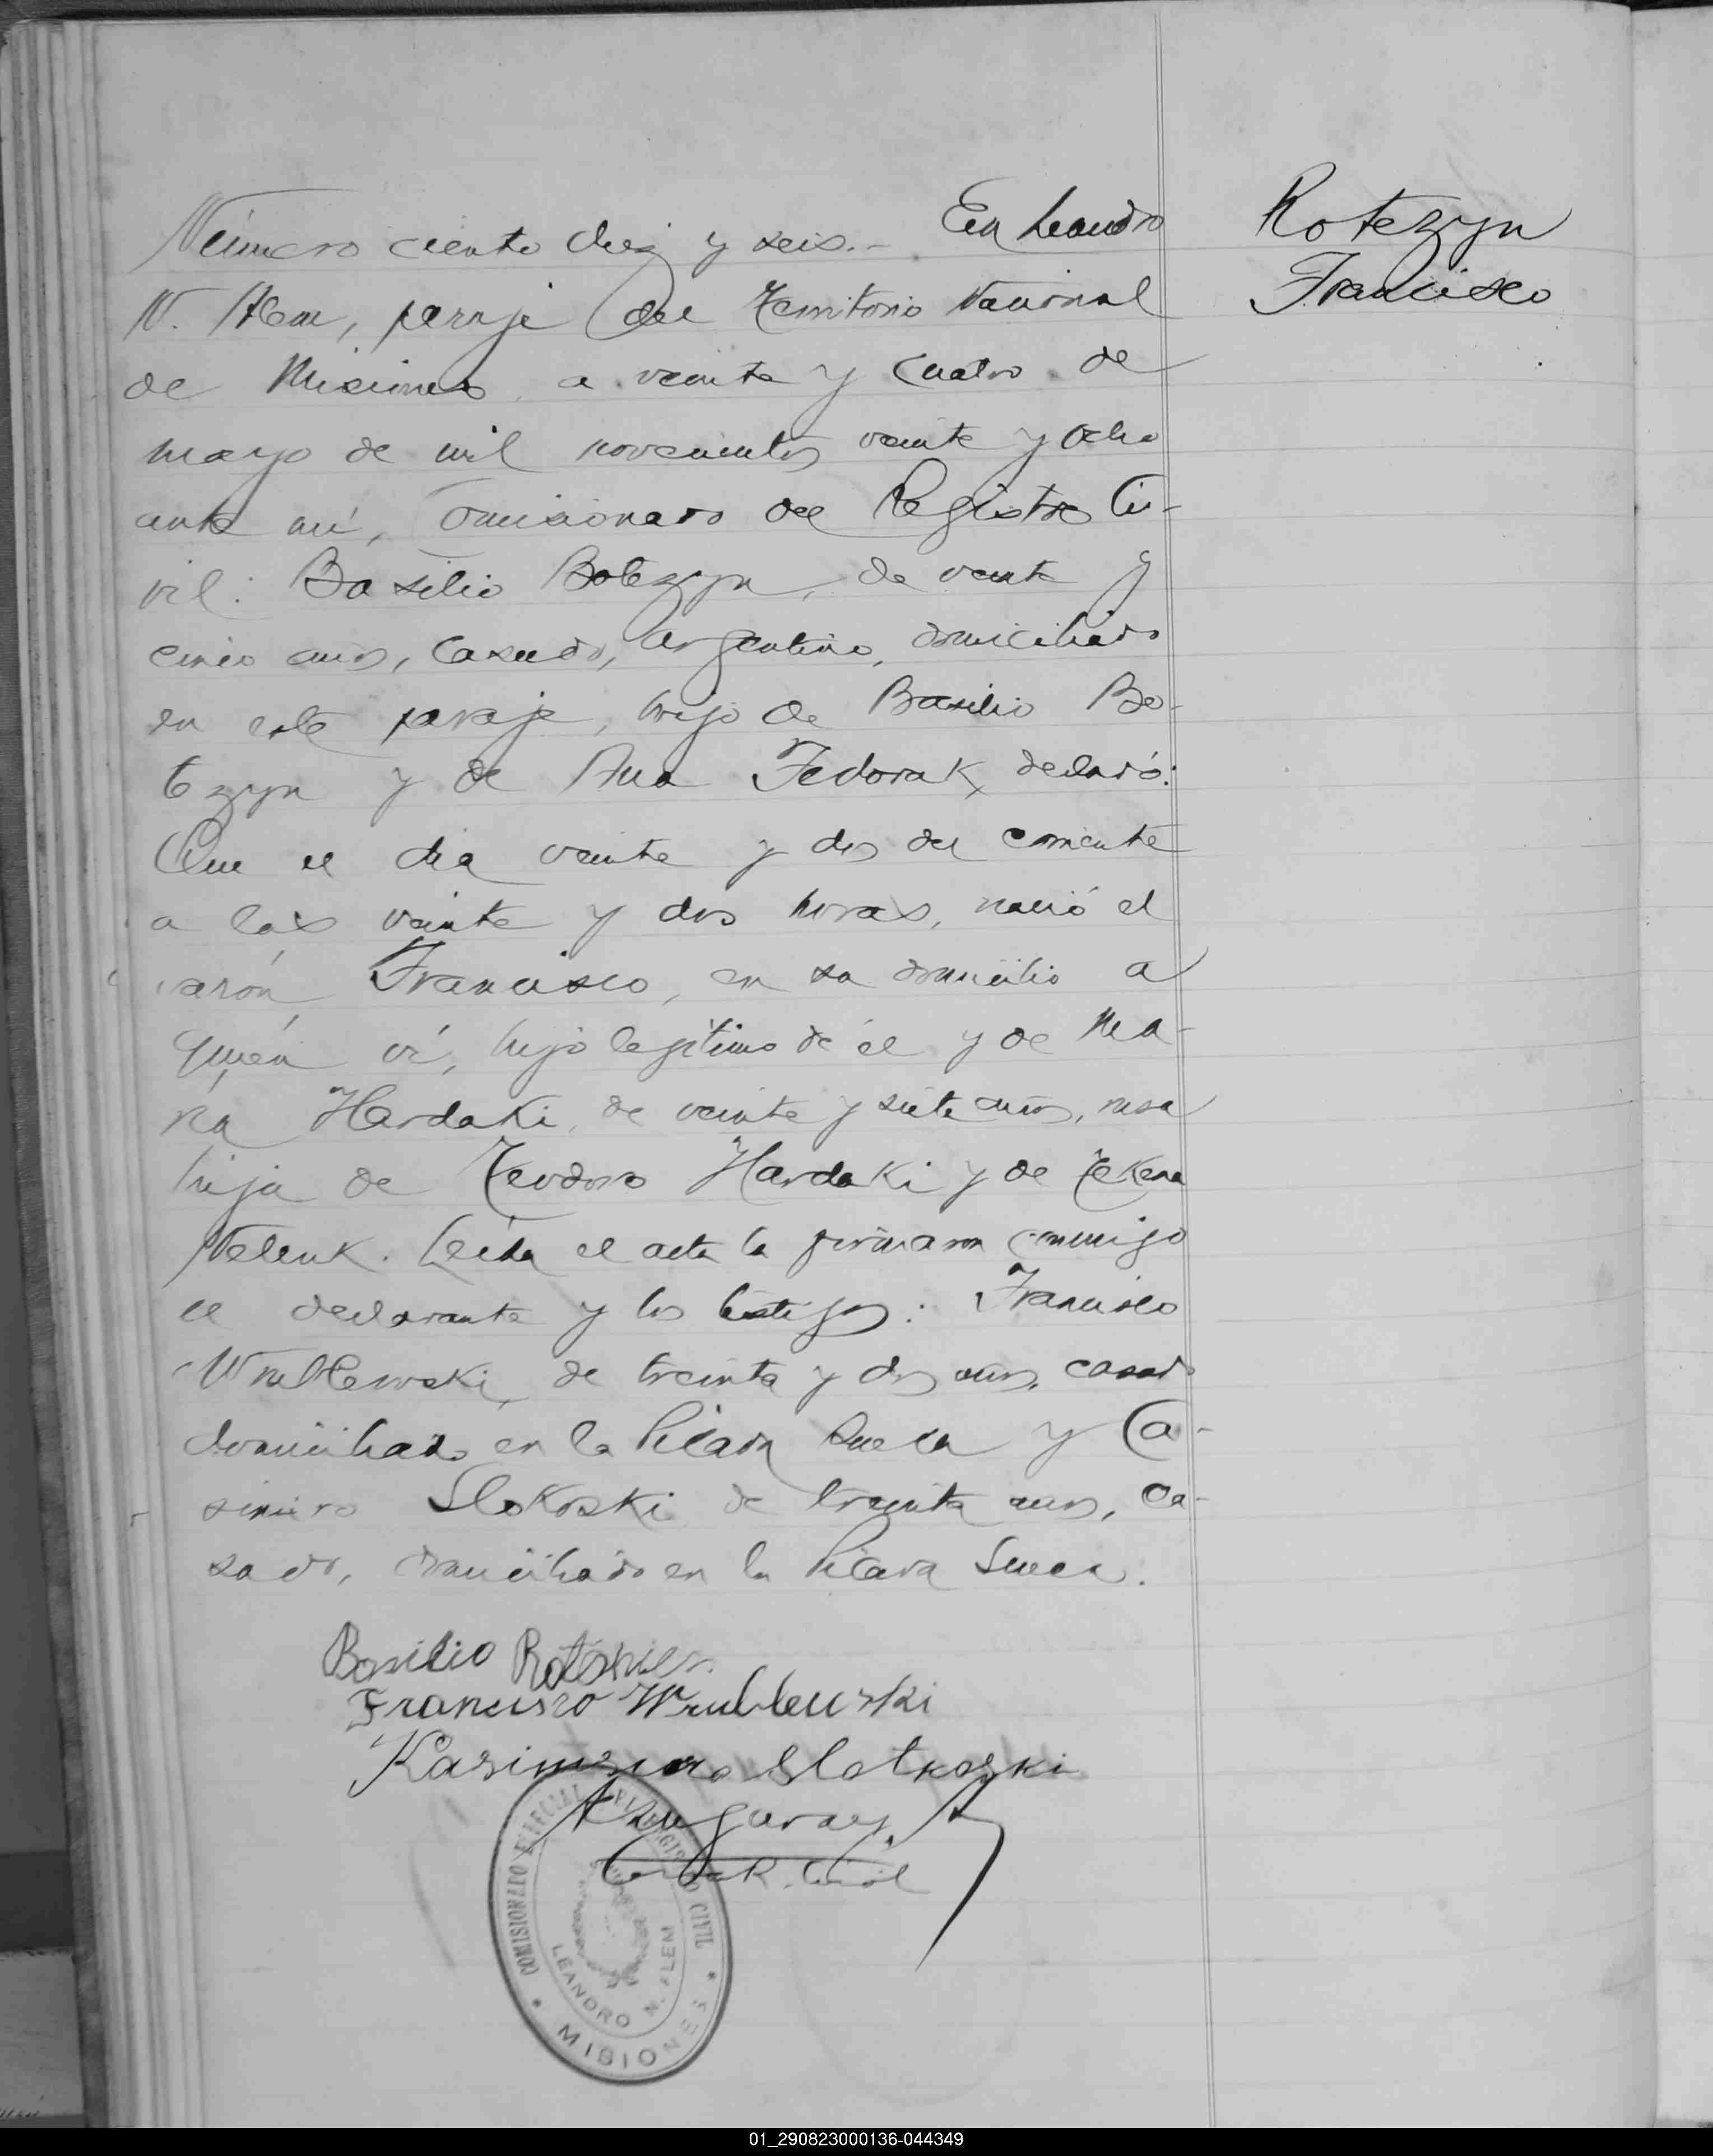 Número ciento diez y seis.- En Leandro
N. Alem, paraje del Territorio Nacional
de Misiones, a veinte y cuatro de
mayo de mil novecientos veinte y ocho
ante mí, Comisionado del Registro Ci-
vil: Basilio Botezyn, de veinte y
cinco años, casado, argentino, domiciliado
en este paraje, hijo de Basilio Bo-
tezyn y de Ana Fedorak, declaró:
Que el dia veinte y dos del corriente
a las veinte y dos horas, nació el
varón Francisco, en su domicilio a
quién ví, hijo legítimo de él y de Ma-
ria Hardaki, de veinte y siete años, rusa
hija de Teodoro Hardaki y de Tekena
Nelenk. Leída el acta la firmaron conmigo
el declarante y los testigos: Francisco
Wrublewski, de treinta y dos años, casado
domiciliado en la Picada Sueca y Ca-
simiro Slokoski de treinta años, ca-
sado, domiciliado en la Picada Sueca.
Rotezyn
Francisco
Basilio
Francisco Wrublewski
Slotkoski
COMISIONADO ESPECIAL DEL REGISTRO CIVIL
LEANDRO N. ALEM
* MISIONES *
01_290823000136-044349